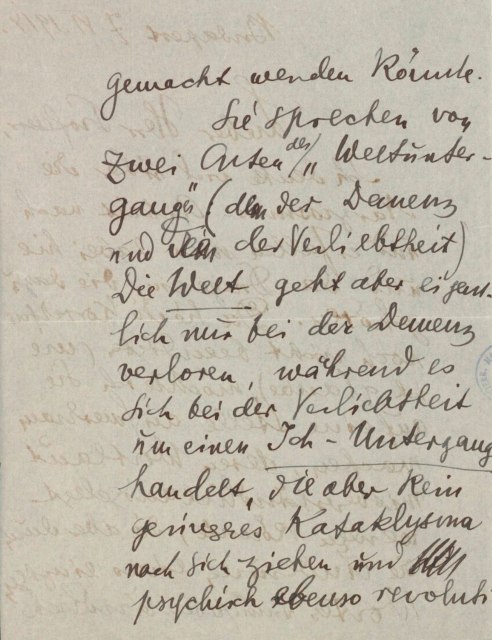 gemacht werden könnte.
Sie sprechen von
zwei Arten des „Weltunter-
gangs" (der Demenz
und der Verliebtheit)
Die Welt geht aber eigent-
lich nur bei der Demenz
verloren, während es
sich bei der Verliebtheit
um einen Ich-Untergang
handelt, die aber kein
geringeres Kataklysma
nach sich ziehen und
psychisch ebenso revoluti